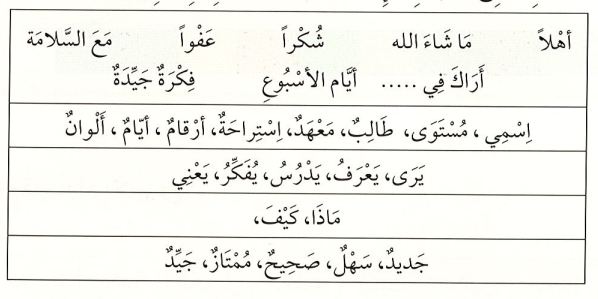 أهْلاً مَا شَاءَ الله شُكْراً عَفْواً مَعَ السَّلامَة
أَرَاكَ فِي ..... أيَّام الأسْبُوعِ فِكْرَةٌ جَيِّدَةٌ
اِسْمِي ، مُسْتَوَى، طَالِبٌ، مَعْهَدٌ، اِسْتِراحَةٌ، أرْقامٌ ، أيّامٌ ، أَلْوانٌ
يَرَى، يَعْرَفُ، يَدْرُسُ، يُفَكِّرُ، يَعْنِي
مَاذَا، كَيْفَ،
جَديدٌ، سَهْلٌ، صَحِيحٌ، مُمْتَازٌ، جَيِّدٌ